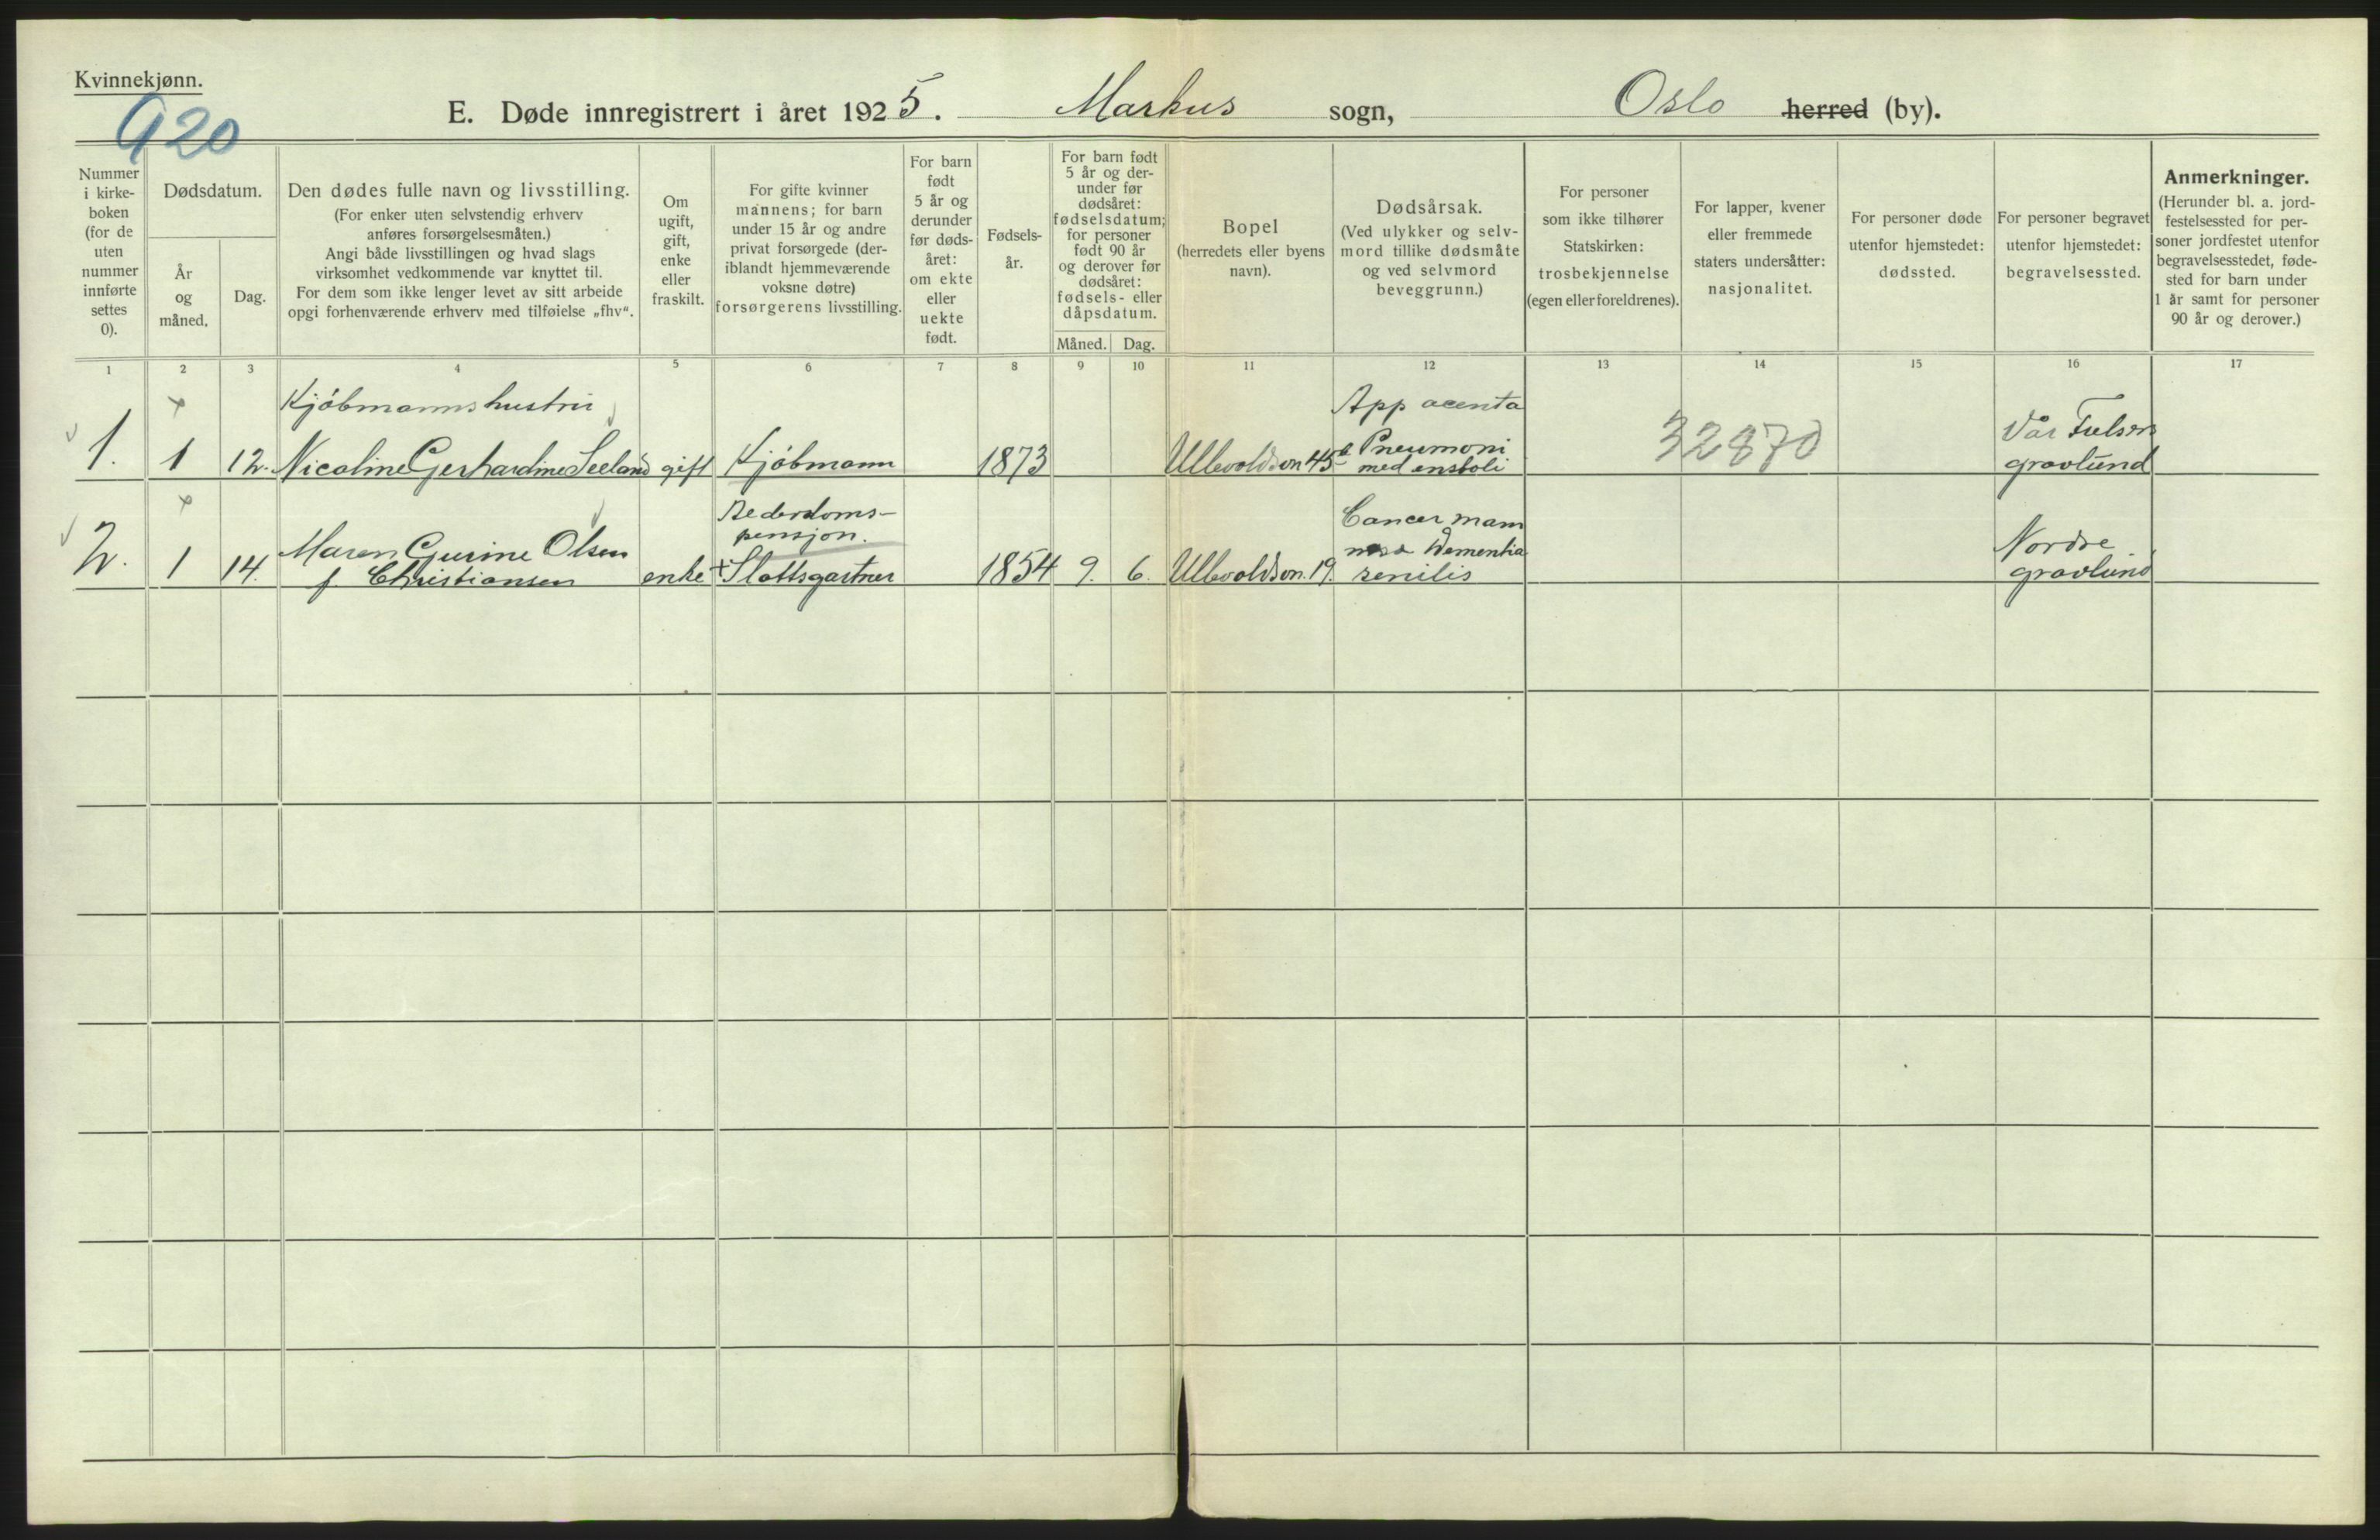 Kvinnekjønn.
920
E. Døde innregistrert i året 1925. Markus sogn, Oslo herred (by).
Nummer
i kirke-
boken
(for de
uten
nummer
innførte
settes
0).
Dødsdatum.
År
og
måned.
Dag.
Den dødes fulle navn og livsstilling.
(For enker uten selvstendig erhverv
anføres forsørgelsesmåten.)
Angi både livsstillingen og hvad slags
virksomhet vedkommende var knyttet til.
For dem som ikke lenger levet av sitt arbeide
opgi forhenværende erhverv med tilføielse „fhv“.
Om
ugift,
gift,
enke
eller
fraskilt.
For gifte kvinner
mannens; for barn
under 15 år og andre
privat forsørgede (der-
iblandt hjemmeværende
voksne døtre)
forsørgerens livsstilling.
For barn
født
5 år og
derunder
før døds-
året:
om ekte
eller
uekte
født.
Fødsels-
år.
For barn født
5 år og der-
under før
dødsåret:
fødselsdatum;
for personer
født 90 år
og derover før
dødsåret:
fødsels- eller
dåpsdatum.
Måned. Dag.
Bopel
(herredets eller byens
navn).
Dødsårsak.
(Ved ulykker og selv-
mord tillike dødsmåte
og ved selvmord
beveggrunn.)
For personer
som ikke tilhører
Statskirken:
trosbekjennelse
(egen eller foreldrenes).
For lapper, kvener
eller fremmede
staters undersåtter:
nasjonalitet.
For personer døde
utenfor hjemstedet:
dødssted.
For personer begravet
utenfor hjemstedet:
begravelsessted.
Anmerkninger.
(Herunder bl. a. jord-
festelsessted for per-
soner jordfestet utenfor
begravelsesstedet, føde-
sted for barn under
1 år samt for personer
90 år og derover.)
1 2 3 4 5 6 7 8 9 10 11 12 13 14 15 16 17
Kjøbmannshustru
1. 1 12. Nicoline Gerhardine Seeland gift Kjøbmann 1873 Ullevoldsvn 45
App acuta
Pneumoni
med emboli
32870
Vår Frelsers
gravlund
2. 1 14.
Maren Gurine Olsen
f. Christiansen
enke
Alderdoms-
pensjon.
+Slottsgartner
1854 9. 6. Ullevoldsvn. 19.
Cancer mam
mae Dementia
senilis
Nordre
gravlund